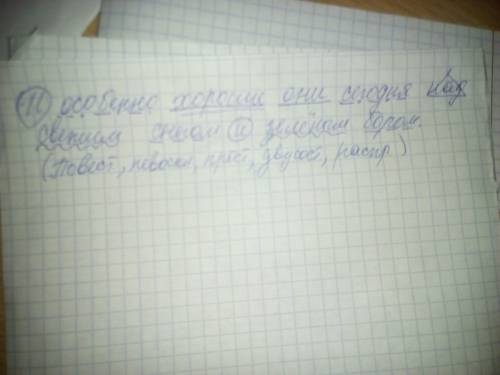 11 особенно хороши они сегодня над
свежим снегом и зелёном бором.
(Повест, невоскл, прост, двусост, распр.)